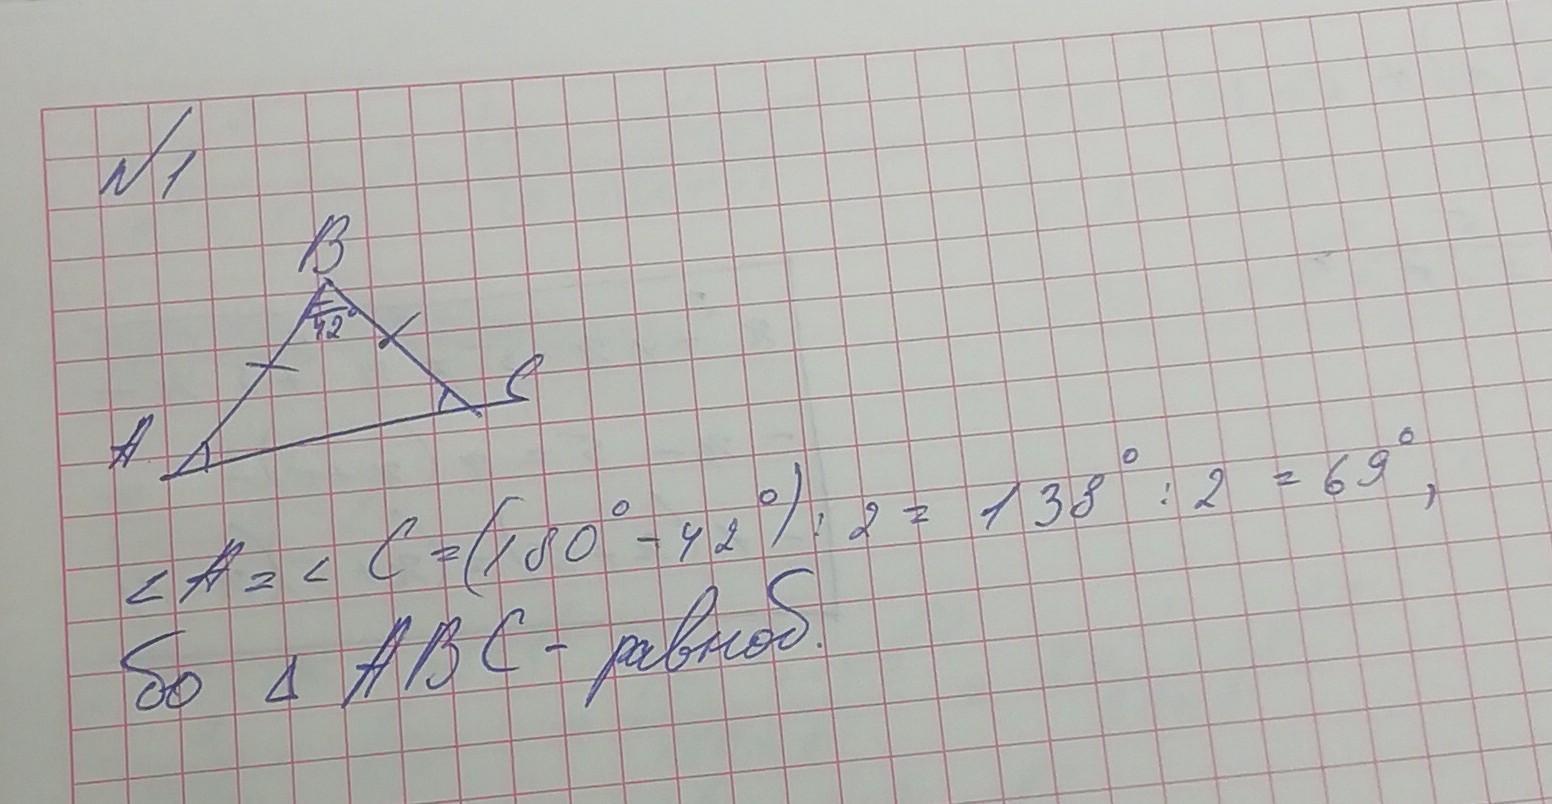 №1
B
42°
A
C
<A=<C=(180°-42°):2=138°:2=69°,
бо Δ ABC - равноб.